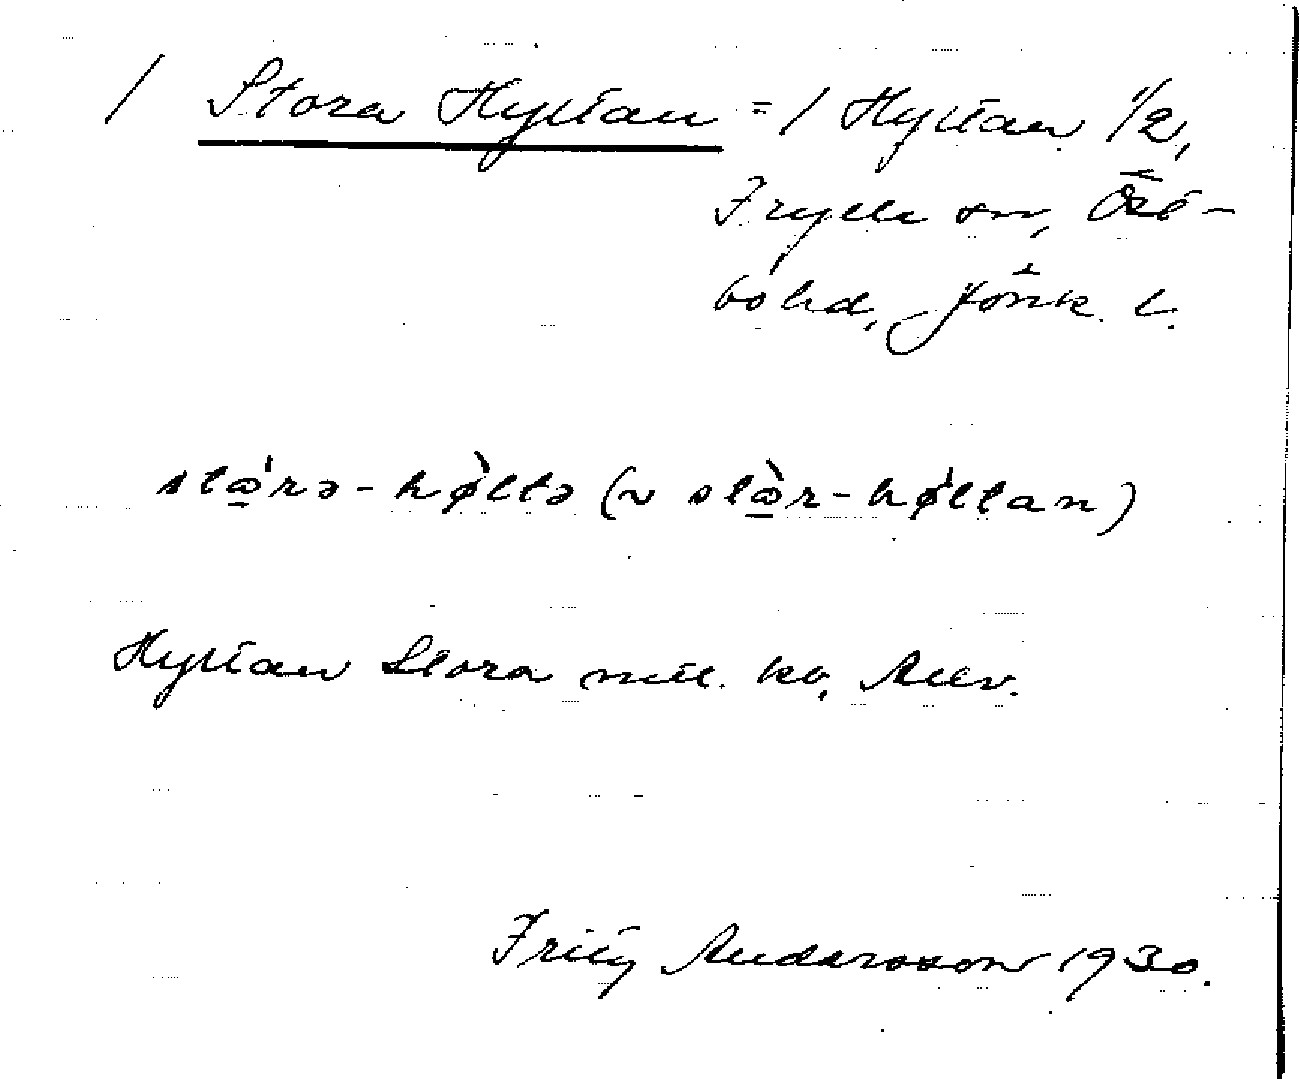 / Stora Hyltan = / Hyltan 1/2,
Fryele sn, Östbo hd, Jönk. l.
stώ̲rə-hø̀ltə (~ stὼ̲r-hǿltan)
Hyltan Stora mtl. ko, AEV.
Fritz Andersson 1930.